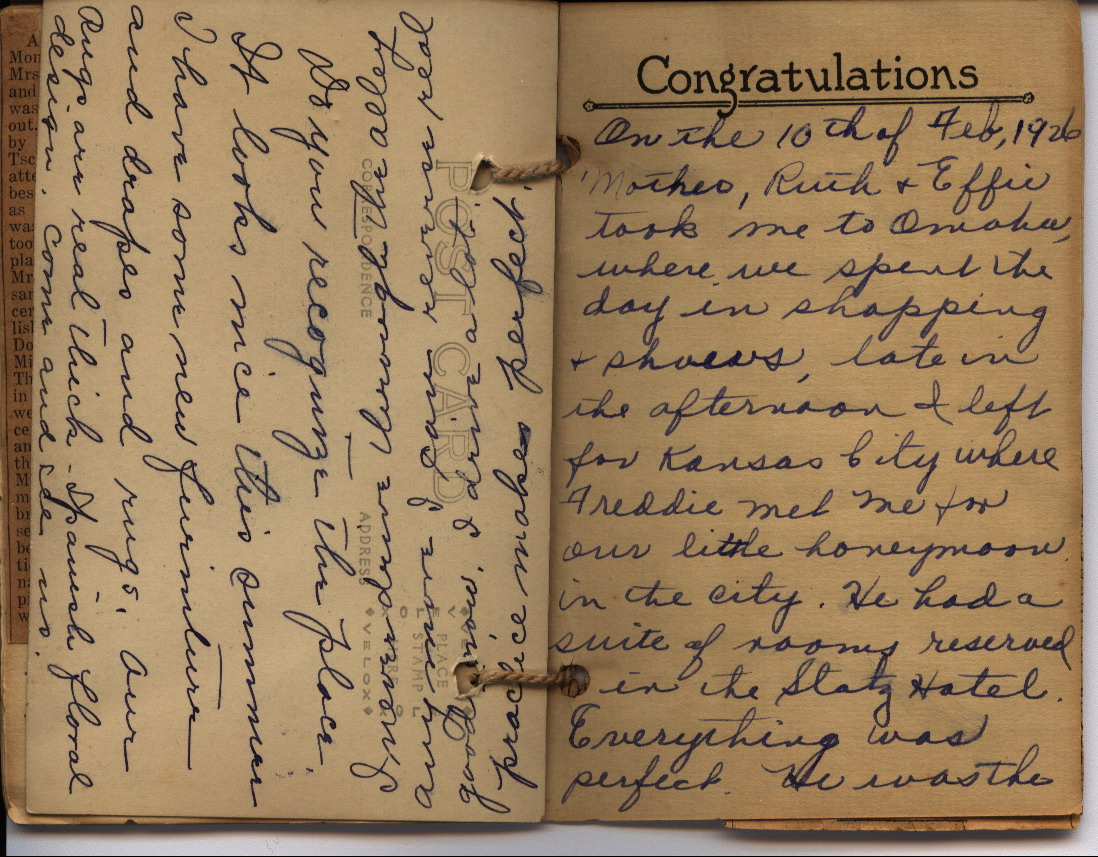 A
Mon
Mrs
and
was
out.
by
Tsc
atte
bes
as
was
too
pla
Mr
sar
cer
lis
Do
Mi
Th
in
we
ce
an
th
M
m
bu
se
be
ti
na
p
w
Do you recognize the place.
It looks nice this summer
I have some new furniture
and drapes and rugs. Our
Rugs are real thick - Spanish floral
design. Come and see us.
anytime I can reverse real
good now, I do a lot
practice makes perfect.
POST CARD
CORRESPONDENCE
ADDRESS
PLACE
STAMP
HERE
VELOX
Congratulations
On the 10th of Feb, 1926
Mother, Ruth & Effie
took me to Omaha,
where we spent the
day in shopping
& shows, late in
the afternoon I left
for Kansas City where
Freddie met me for
our little honeymoon
in the city. He had a
suite of rooms reserved
in the Statz Hotel.
Everything was
perfect. He was the